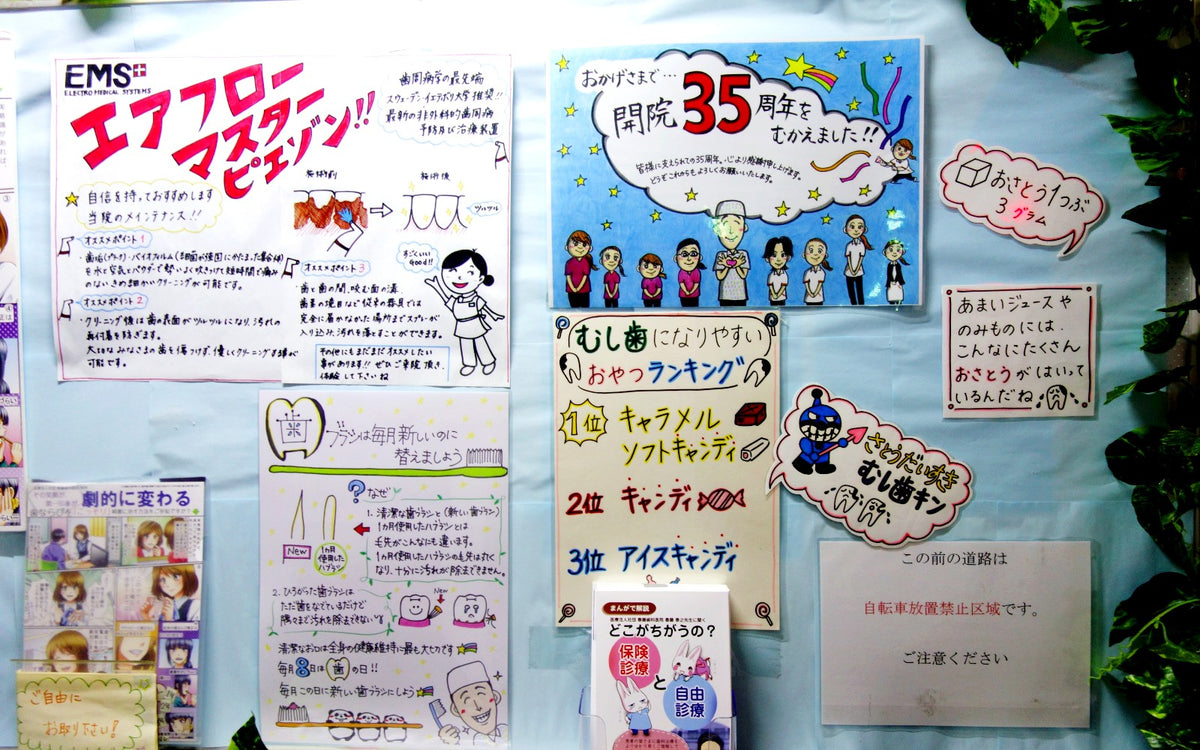 EMS+
ELECTRO MEDICAL SYSTEMS
エアフロー
マスター
ピエゾン!!
歯周病学の最先端
スウェーデン・イエテボリ大学推奨!!
最新の非外科的歯周病
予防及び治療装置
自信を持っておすすめします
当院のメインテナンス!!
オススメポイント1
・歯垢(プラーク)・バイオフィルム(細菌が強固にかたまった集合体)
を水と空気とパウダーで勢いよく吹きつけて短時間で痛み
のないきめ細かいクリーニングが可能です。
オススメポイント2
・クリーニング後は歯の表面がツルツルになり、汚れの
再付着を防ぎます。
大切なみなさまの歯を傷つけず、優しくクリーニングする事が
可能です。
施術前
施術後
ツルツル
すごくいい
GOOD!!
オススメポイント3
・歯と歯の間、咬む面の溝、
歯茎の境目など従来の器具では
完全に届かなかった場所までスプレーが
入り込み、汚れを落とすことができます。
その他にもまだまだオススメしたい
事があります!!ぜひご来院頂き、
体験して下さいね
おかげさまで…
開院35周年を
むかえました!!
皆様に支えられての35周年。心より感謝申し上げます。
どうぞこれからもよろしくお願いいたします。
おさとう1つぶ
3グラム
あまいジュースや
のみものには、
こんなにたくさん
おさとうがはいって
いるんだね
むし歯になりやすい
おやつランキング
1位 キャラメル
ソフトキャンディ
2位 キャンディ
3位 アイスキャンディ
さとうだいすき
むし歯キン
この前の道路は
自転車放置禁止区域です。
ご注意ください
ブラシは毎月新しいのに
替えましょう
なぜ
1. 清潔な歯ブラシと(新しい歯ブラシ)
1ヵ月使用したハブラシとは
毛先がこんなにも違います。
1ヵ月使用したハブラシの毛先は丸く
なり、十分に汚れが除去できません。
New
1ヵ月
使用した
ハブラシ
2. ひろがった歯ブラシは
ただ歯をなでているだけで
隅々まで汚れを除去できない
New
清潔なお口は全身の健康維持に最も大切です
毎月8日は歯の日!!
毎月この日に新しい歯ブラシにしよう
まんがで解説
どこがちがうの?
保険
診療
と
自由
診療
劇的に変わる
ご自由に
お取り下さい!